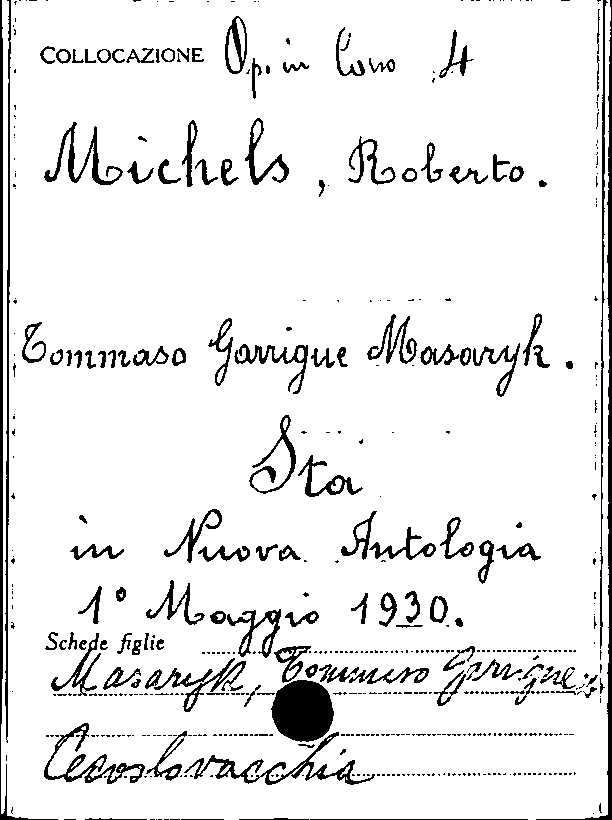 COLLOCAZIONE Op. in Cons 4
Michels, Roberto.
Tommaso Garrigue Masaryk.
Sta
in Nuova Antologia
1° Maggio 1930.
Schede figlie
Masaryk, Tommaso Garrigue
Cecoslovacchia